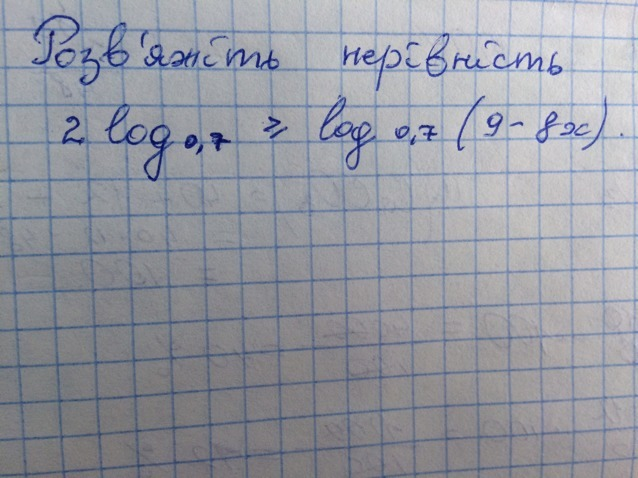 Розв'яжіть нерівність
2 log 0,7 ≥ log 0,7 (9 - 8x).